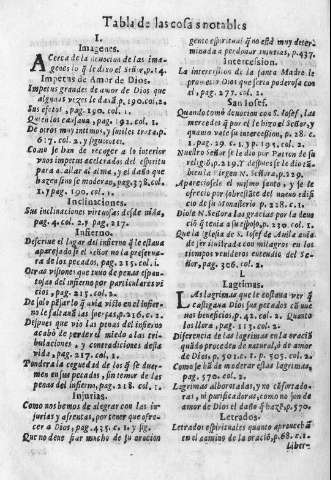 Tabla de las cosas notables
I.
Imagenes.
Acerca de la deuocion de las imagenes
lo q̃ le dixo el Señor, p.14.
Impetus de Amor de Dios.
Impetus grandes de amor de Dios que
algunas vezes le dauã, p. 190. col. 2.
Sus efetos, pag. 190. col. 1.
Quien los causaua, pag. 192. col. 1.
De otros muy intimos, y sutiles
617. col. 2. y siguientes.
Como se han de recoger a lo interior
vnos impetus acelerados del espiritu
para a aliar al alma, y el daño que
hazen sino se moderan, pag. 378. col.
1. y pag. 190. col. 1.
Inclinaciones.
Sus inclinaciones virtuosas desde niña,
pag. 4. col. 2. y pag. 217.
Infierno.
Descriue el lugar del infierno q̃ le estaua
aparejado si el Señor no la preseruara
de los pecados, pag. 215. col. 1.
Otras visiones que tuuo de penas espantosas
del infierno por particulares vicios,
pag. 215. col. 2.
De solo pẽsar lo q̃ auia visto en el infierno
le faltauã las fuerças, p. 216. c. 2.
Despues que vio las penas del infierno
acabò de perder el miedo a las tribulaciones
y contradiciones desta
vida, pag. 217. col. 2.
Pondera la ceguedad de los q̃ se duermen
en sus pecados, sin temor de las
penas del infierno, pag. 218. col. 1.
Injurias.
Como nos hemos de alegrar con las injurias
y afrentas, por tener que ofrecer
a Dios, pag. 435. c. 1. y pag. 91.
Que no deue fiar mucho de su oracion
gente espiritual q̃ no està muy determinada
a perdonar injurias, p. 437.
Intercession.
La intercession de la santa Madre le
prometio Dios que seria poderosa con
el, pag. 277. col. 2.
San Iosef.
Quando tomò deuocion con S. Iosef, las
mercedes q̃ por el le hizo el Señor, y
quanto vale su intercession, p. 28. c.
1. pag. 29. c. 1. y p. 195. col. 2.
Nuestro Señor le dio por Patron de su
religiõ, p. 219. Y despues se le dio tãbien
la Virgen N. Señora, p. 229.
Apareciosele el mismo santo, y se le
ofrecio por sobrestãte del nueuo edificio
de su Monasterio, p. 228. c. 1.
Diole N. Señora las gracias por la deuociõ
q̃ tenia a su esposo, p. 230. col. 1.
Que la iglesia de S. Iosef de Auila auia
de ser ilustrada con milagros en los
tiempos venideros entendio del Señor,
pag. 306. col. 2.
L
Lagrimas.
Las lagrimas que le costaua ver q̃
castigaua Dios sus pecados cõ nueuos
beneficios, p. 42. col. 2. Quanto
los llora, pag. 113. col. 2.
Diferencia de las lagrimas en la oraciõ
quãdo proceden de natural, ò de amor
de Dios, p. 501. c. 1. p. 505. col. 2.
Como se hã de moderar estas lagrimas,
pag. 570. col. 2.
Lagrimas alborotadas, y no esforçadoras,
ni purificadoras, como no son de
amor de Dios el daño q̃ hazẽ, p. 570.
Letrados.
Letrados espirituales quanto aprouechan
en el camino de la oraciõ, p. 68. c. 2.
Liber-